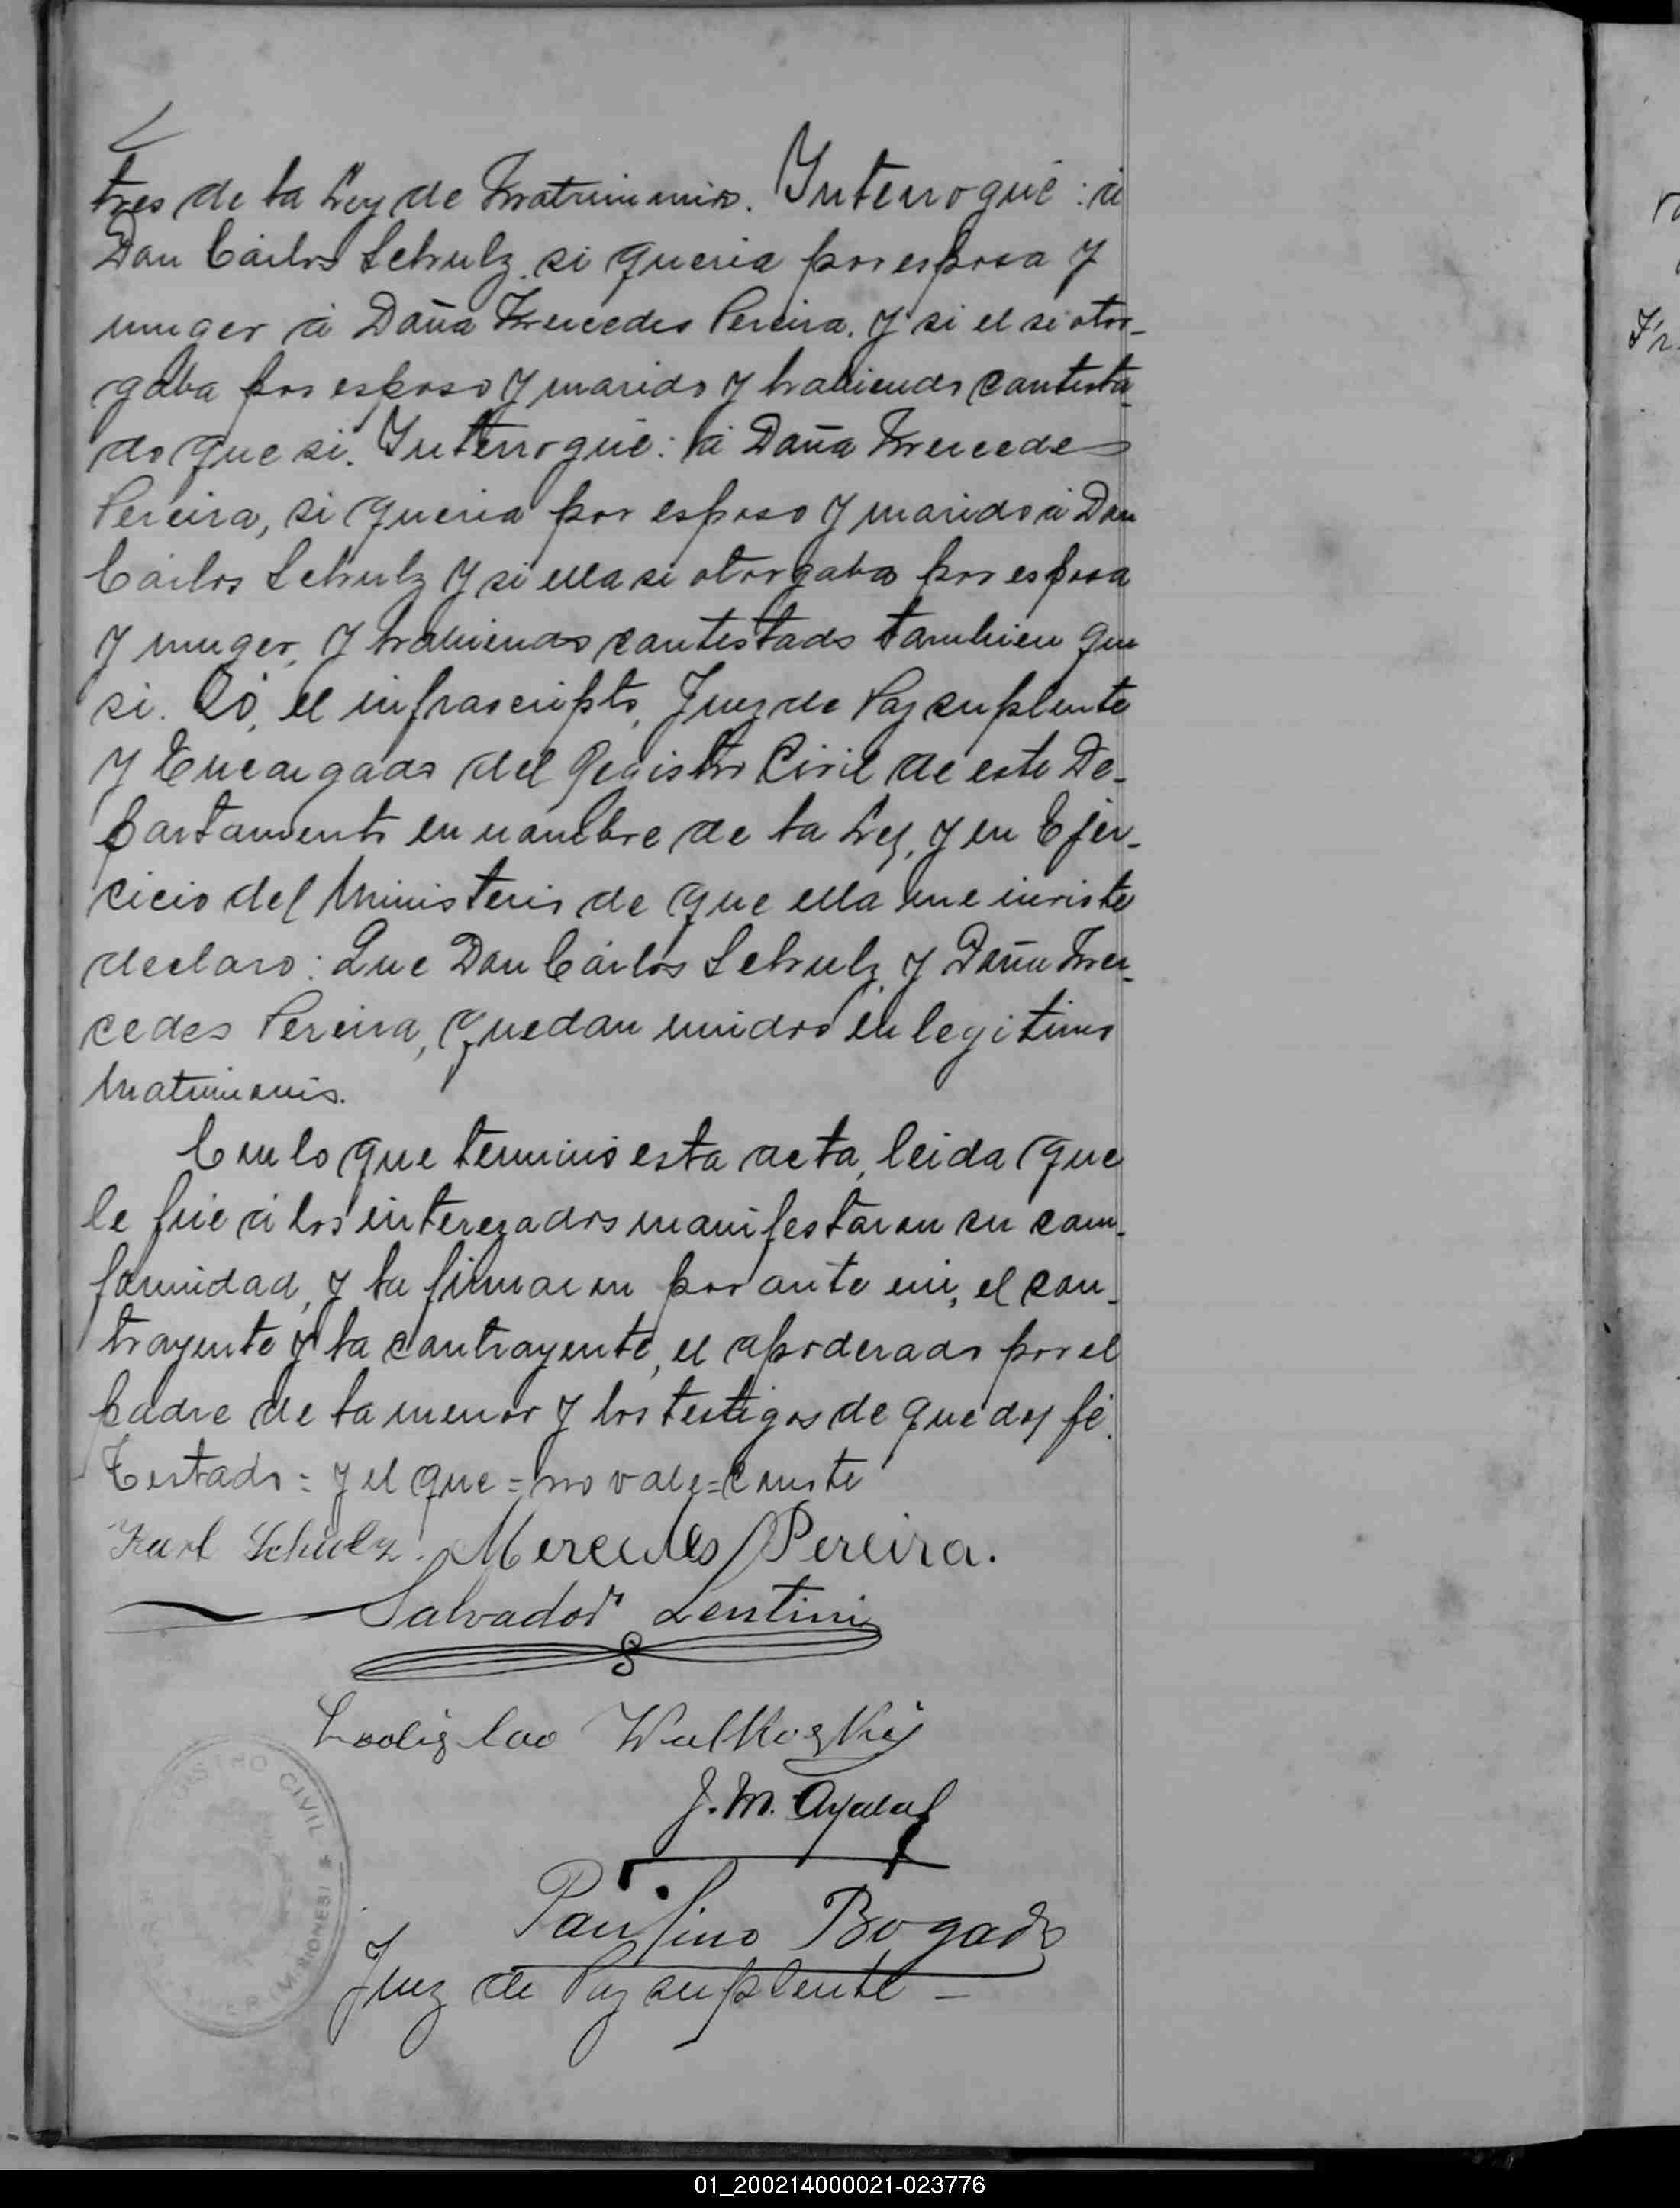 tres de la Ley de Matrimonio. Interrogué: á
Don Cárlos Schulz, si queria por esposa y
muger á Doña Mercedes Pereira, y si el se otor-
gaba por esposo y marido y habiendo contesta-
do que si. Interrogué: á Doña Mercedes
Pereira, si queria por esposo y marido á Don
Cárlos Schulz y si ella se otorgaba por esposa
y muger, y habiendo contestado tambien que
si. Yó, el infrascripto, Juez de Paz suplente
y Encargado del Registro Civil de este De-
partamento en nombre de la Ley, y en Ejer-
cicio del Ministerio de que ella me inviste
declaro: Que Don Cárlos Schulz, y Doña Mer-
cedes Pereira, quedan unidos en legitimo
Matrimonio.
Con lo que terminó esta acta, leida que
le fué á los interezados manifestaron su con-
formidad, y la firmaron por ante mi, el con-
trayente y la contrayente, el apoderado por el
padre de la menor y los testigos de que doy fé.
Testado = y el que = no vale = conste
Karl Schulz. Mercedes Pereira.
Salvador Lentini
Ladislao Walkoskij
J. M. Ayala
Paulino Bogado
Juez de Paz suplente -
CIVIL
(MISIONES)
01_200214000021-023776